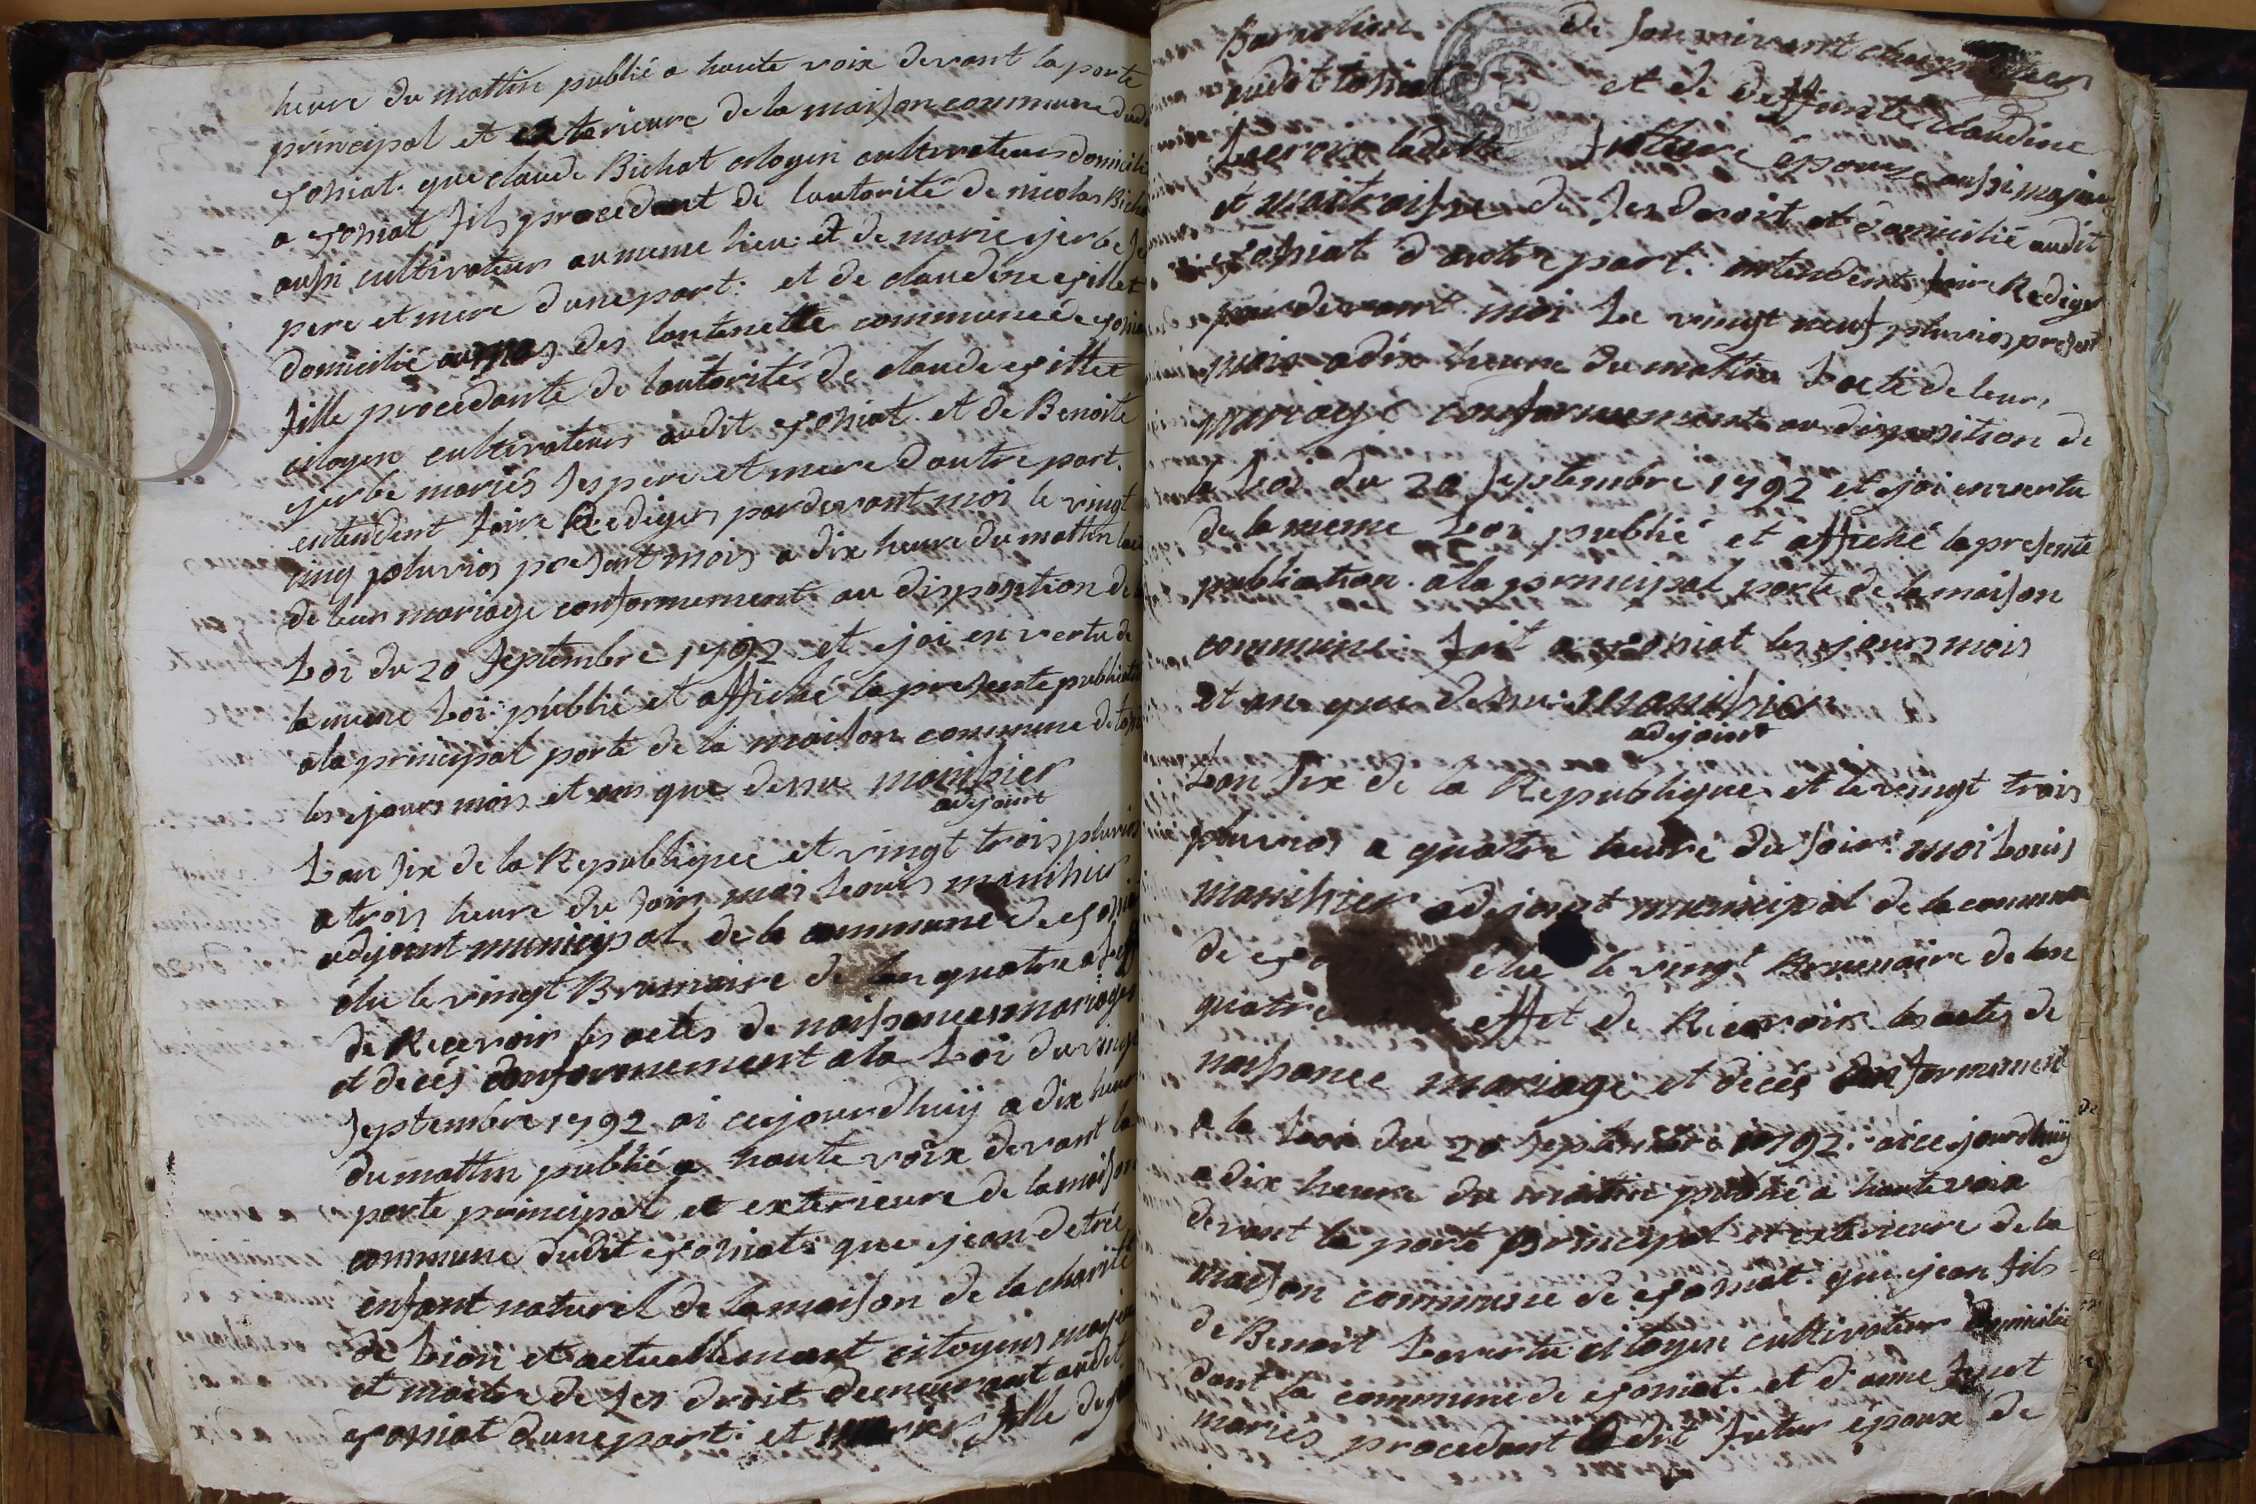 heure du mattin publié a haute voix devant la porte
principal et exterieure de la maison commune dudit
que claude Bichat citoyen cultivateur domicilié
a fils procedant de lautorité de nicolas Bichat
aussi cultivateur au meme lieu et de marie gerbe
pere et mere dune part. et de claudine gillet
domicilié des lantenette commune de
fille procedante de lautorité de claude gillet
citoyen cultivateur audit et de Benoite
gerbe mariés ses pere et mere dautre part.
entendent faire Rediger pardevant moi le vingt
cinq pluvios present mois a dix heure du mattin
de leur mariage conformement au disposition de
Loi du 20 septembre 1792 et jai en vertu de
la meme Loi publié et affiché la presente publication
a la principal porte de la maison commune de
les jours mois et an que dessu manihier
adejoint
Lan six de la Republique et vingt trois pluvios
a trois heure du soir moi Louis manihier
adejoint municipal de la commune de
élu le vingt Brumaire de lan quatre
de Recevoir les actes de naissances mariages
et decés conformement a la Loi du vingt
septembre 1792 ai cejourdhuij a dix heure
du mattin publié a haute voix devant la
porte principal et exterieure de la maison
commune dudit que jean detrie
enfant naturel de la maison de la charité
de Lion et actuellement citoyens majeur
et maitre de ses droit demeurant audit
dune part. et fille de
de son vivant
audit et de deffunte claudine
Lacroix ladette future épouse aussi majeur
et maitraisse de ses droit et domicilié audit
d'autre part. entendent faire Rediger
par devant moi Le vingt neuf pluvios present
mois a dix heure du mattin Lacte de leur
mariage conformement au disposition de
la Loi du 20 septembre 1792 et jai en vertu
de la meme Loi publié et affiché la presente
publication a la principal porte de la maison
commune. fait a les jours mois
et an que dessu. manihier
adejoint
Lan six de la Republique et le vingt trois
pluvios a quatre heure du soir. moi Louis
manihier adejoint municipal de la commune
de élu le vingt Brumaire de lan
quatre effet de Recevoir les actes de
naissance mariage et decés conformement
a la Loi du 20 septembre 1792. ai ce jourdhuij
a dix heure du mattin publié a haute voix
devant la porte principal et exterieure de la
maison commune de que jean fils
de Benoit Lavertu citoyen cultivateur domicilié
dant la commune de et d'anne
mariés procedant ledit futur époux de